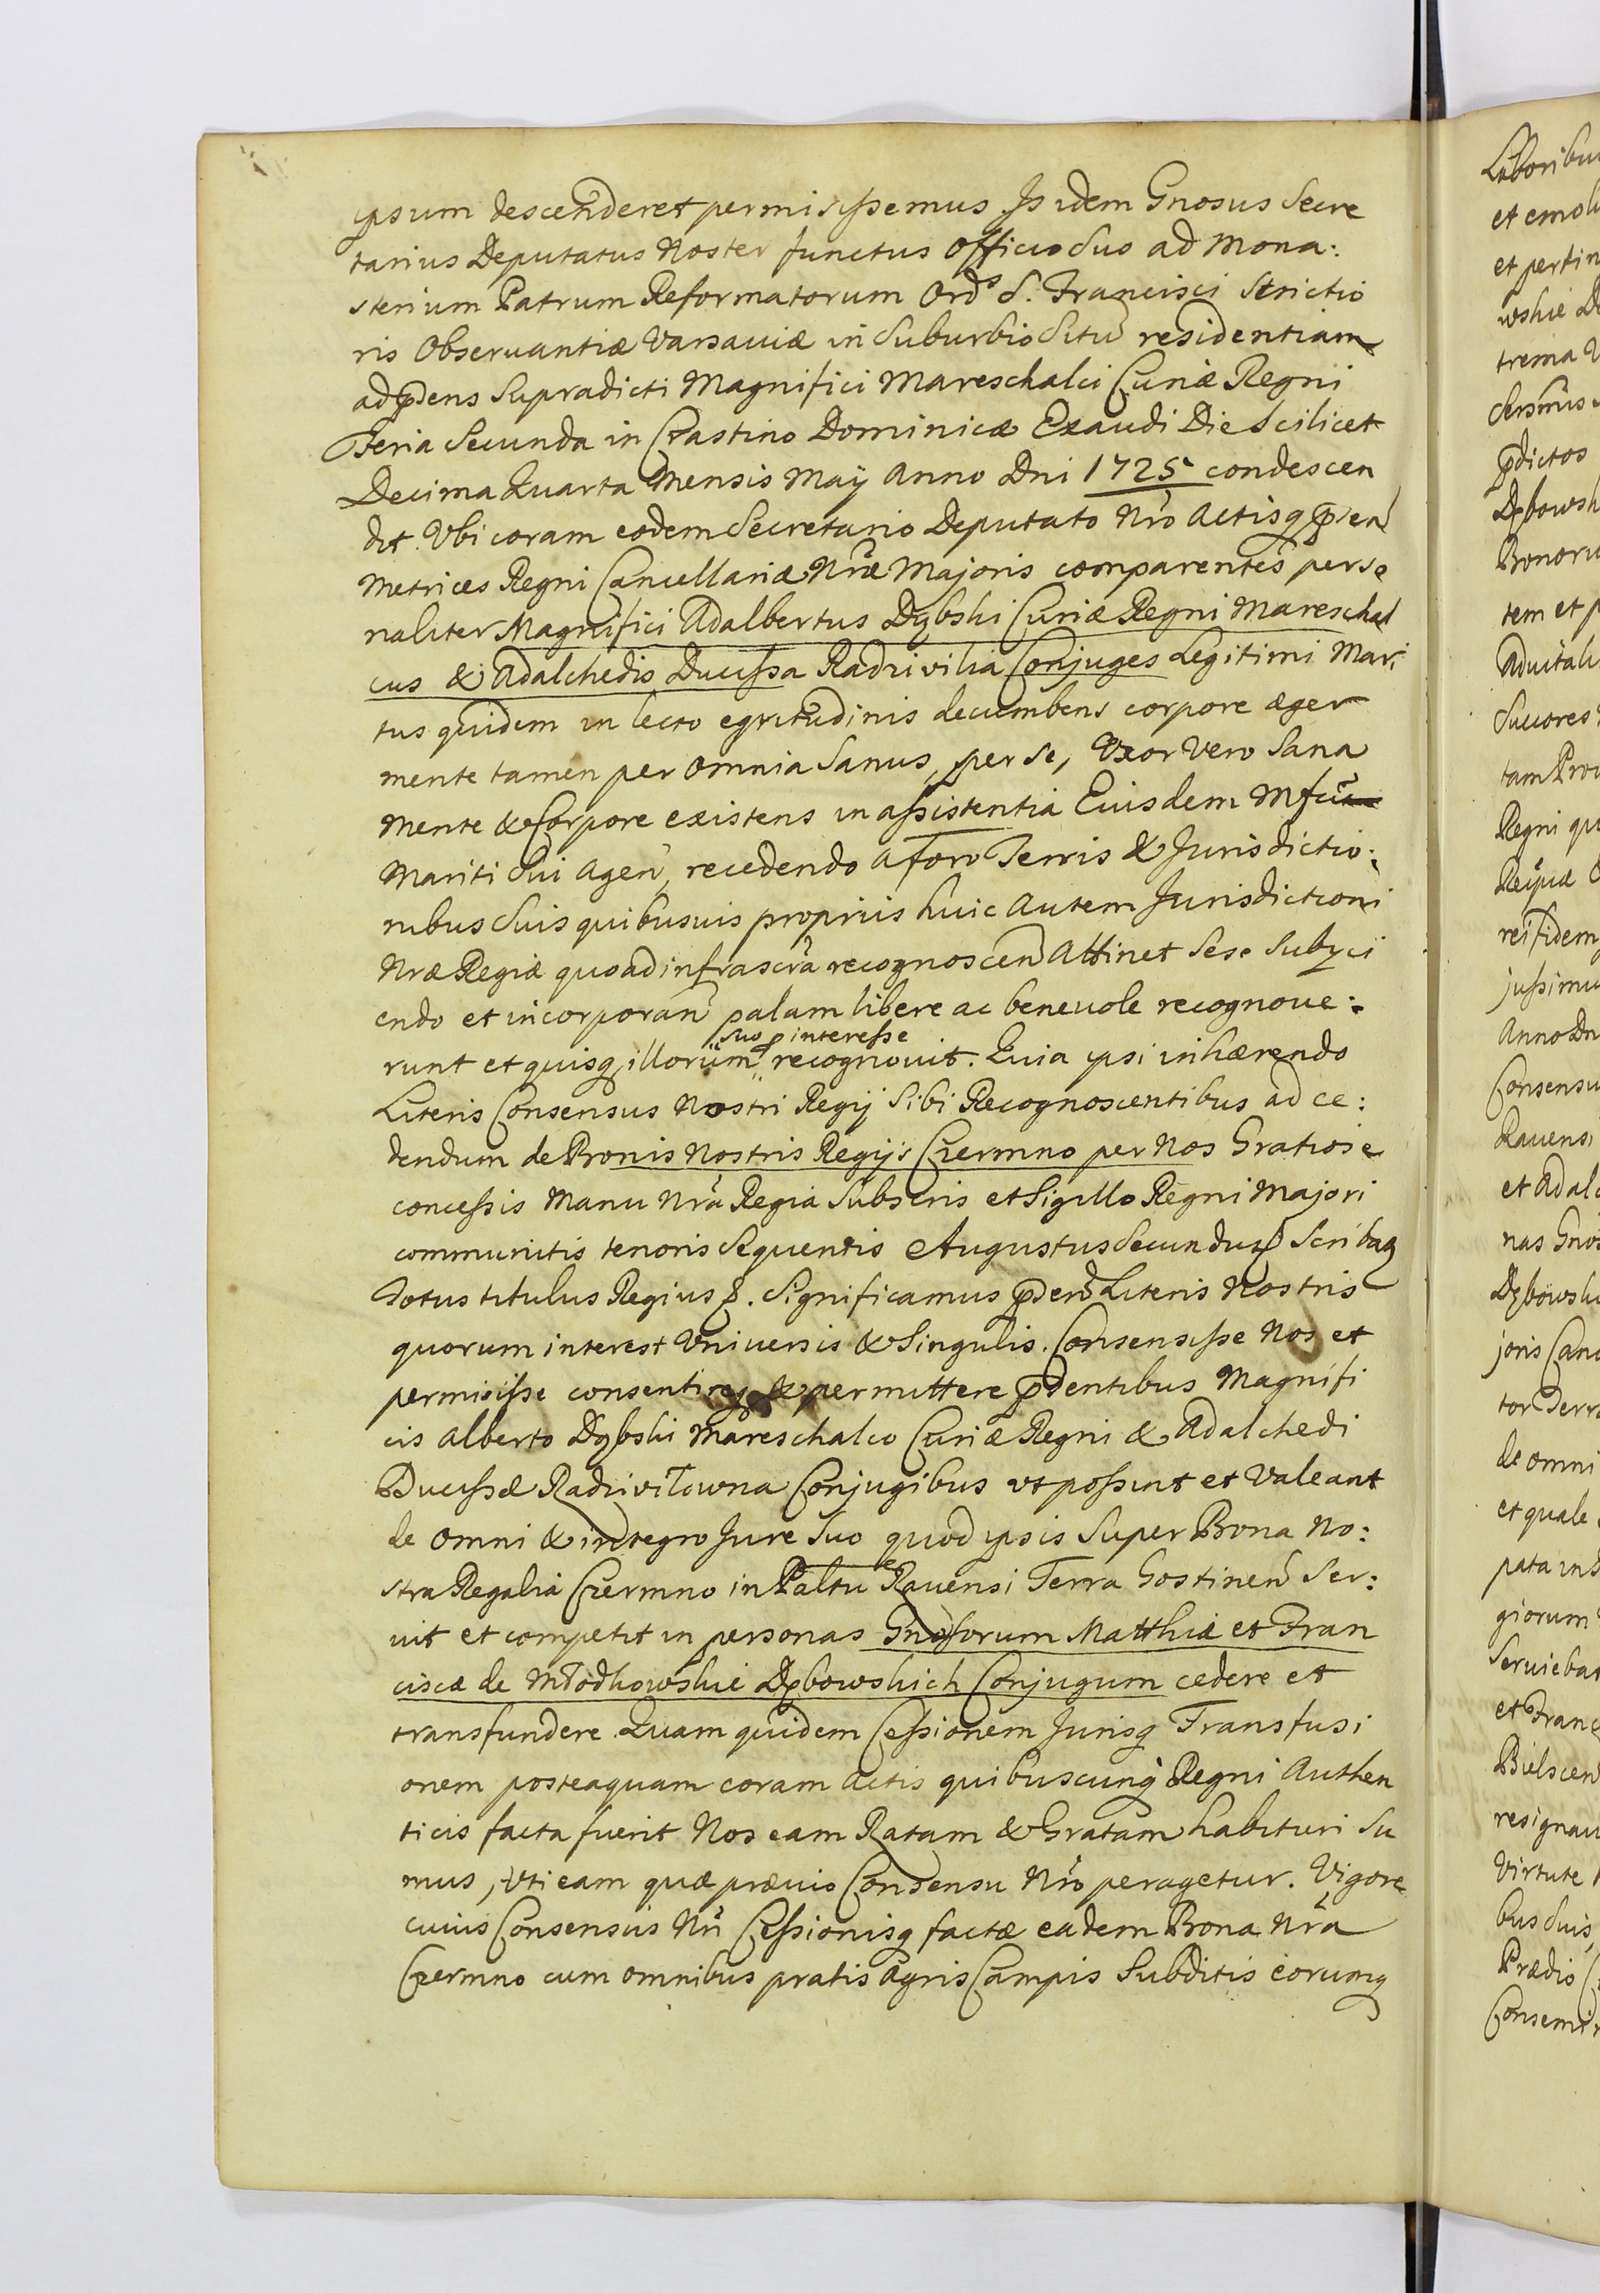 ipsum descenderet permisissemus Is idem Gnosus Secre
tarius Deputatus Noster functus Officio Suo ad Mona:
sterium Patrum Reformatorum Ords S. Francisci Strictio
ris Obseruantiæ Varsauiæ in Suburbio Situ residentiam
ad p̄sens Supradicti Magnifici Mareschalci Curiæ Regni
Feria Secunda in Crastino Dominicæ Exaudi Die Scilicet
Decima Quarta Mensis Maij Anno Dni 1725 condescen
dit. Vbi coram eodem Secretario Deputato Nrō Actisq p̄sen
Metrices Regni Cancellariæ Nræ Majoris comparentes perso
naliter Magnifici Adalbertus Dąbski Curiæ Regni Mareschal
cus & Adalchedis Ducissa Radzivilia Conjuges Legitimi Mari
tus quidem in lecto egritudinis decumbens corpore æger
mente tamen per omnia Sanus, per se, Vxor Vero Sana
Mente & Corpore existens in assistentia Eiusdem Mfci
Mariti Sui Agen, recedendo a foro Terris & Jurisdictio:
nibus Suis quibusuis proprijs huic Autem Jurisdictioni
Nræ Regiæ quoad infrascra recognoscen Attinet Sese Subyci
endo et incorporan palam libere ac beneuole recognoue:
runt et quisq illorum recognouit. Quia ipsi inhærendo
suo interesse
Literis Consensus Nostri Regij Sibi Recognoscentibus ad ce:
dendum de Bonis Nostris Regijs Czermno per Nos Gratiose
concessis Manu Nrā Regia Subscris et Sigillo Regni Majori
communitis tenoris Sequentis Augustus Secundus Scribaz
Totus titulus Regius. Significamus p̄sen Literis Nostris
quorum interest Vniuersis & Singulis. Consensisse Nos et
permisisse consentireq & permittere p̄sentibus Magnifi
cis Alberto Dąbski Mareschalco Curiæ Regni & Adalchedi
Ducissæ Radziviłowna Conjugibus vt possint et Valeant
de omni & integro Jure Suo quod ipsis Super Bona No:
stra Regalia Czermno in Paltu Rauensi Terra Gostinen Ser:
uit et competit in personas Gnosorum Matthiæ et Fran
ciscæ de Młodkowskie Dębowskich Conjugum cedere et
transfundere Quam quidem Cessionem Jurisq Transfusi
onem posteaquam coram Actis quibuscunq Regni Authen
ticis facta fuerit Nos eam Ratam & Gratam habituri Su
mus, Vti eam quæ præuio Consensu Nrō peragetur. Vigore
cuius Consensus Nri Cessionisq factæ eadem Bona Nrā
Czermno cum omnibus pratis Agris Campis Subditis eorumq
Laboribu
et emolu
et pertin
wskie D
trema V
Sersmus
p̄dictos
Dębowsk
Bonoru
tem et p
Aduitali
Succores
tam Prou
Regni qu
Reiquæ
rei fidem
jussimu
Anno Dn
Consensu
Rauensi
et Adal
nas Gnos
Dębowski
joris Canc
tor Terr
de omni
et quale
pata ins
giorum
Seruieba
et Franc
Bielscen
resignau
Virtute
bus Suis
Prædio
Consenti